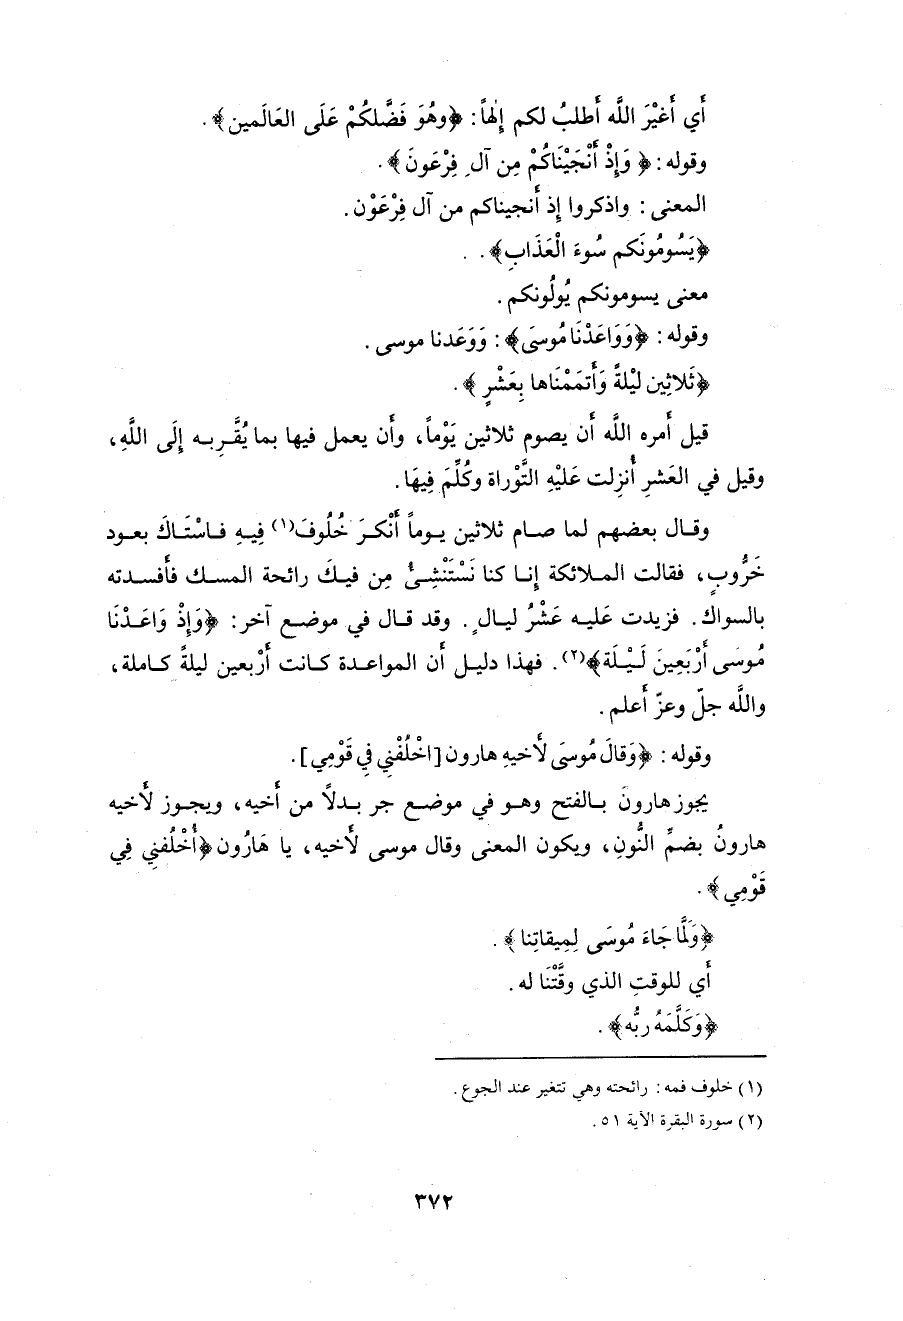 أَي أَغَيْرَ اللَّه أَطلبُ لكم إِلٰهاً: ﴿وهُوَ فَضَّلكُمْ عَلَى العَالَمين﴾.
وقوله: ﴿وَإِذْ أَنْجَيْنَاكُمْ مِن آلِ فِرْعَونَ﴾.
المعنى: واذكروا إِذ أَنجيناكم من آل فِرْعَوْن.
﴿يَسُومُونَكم سُوءَ الْعَذَابِ﴾.
معنى يسومونكم يُولُونكم.
وقوله: ﴿وَوَاعَدْنَا مُوسَى﴾: وَوَعَدنا موسى.
﴿ثَلاثِين لَيْلةً وَأَتمَمْنَاها بِعَشْرٍ﴾.
قيل أَمره اللَّه أَن يصوم ثلاثين يَوْماً، وأَن يعمل فيها بما يُقَّرِبه إِلَى اللَّهِ،
وقيل في العَشرِ أُنزِلت عَلَيْهِ التَّوْراة وكُلِّمَ فِيهَا.
وقال بعضهم لما صام ثلاثين يوماً أَنْكرَ خُلُوفَ(١) فِيهِ فاسْتَاكَ بعود
خَرُّوبٍ، فقالت الملائكة إِنا كنا نَسْتَنْشِئُ مِن فيكَ رائحة المسك فأَفسدته
بالسواك. فزيدت عَليه عَشْرُ ليالٍ. وقد قال في موضع آخر: ﴿وَإِذْ وَاعَدْنَا
مُوسَى أَرْبَعِينَ لَيْلَة﴾(٢). فهذا دليل أَن المواعدة كانت أَرْبعين ليلةً كاملة،
واللَّه جلّ وعزّ أَعلم.
وقوله: ﴿وَقالَ مُوسَى لأَخيهِ هارون [اخْلُفْنِي فِي قَوْمِي].
يجوز هارونَ بالفتح وهو في موضع جر بدلاً من أَخيه، ويجوز لأَخيه
هارونُ بضمِّ النُّونِ، ويكون المعنى وقال موسى لأَخيه، يا هَارُون ﴿أُخْلُفنِي فِي
قَوْمِي﴾.
﴿وَلَمَّا جَاءَ مُوسَى لِمِيقاتِنا﴾.
أَي للوقتِ الذي وقَّتْنَا له.
﴿وَكَلَّمَهُ ربُّه﴾.
(١) خلوف فمه: رائحته وهي تتغير عند الجوع.
(٢) سورة البقرة الآية ٥١.
٣٧٢